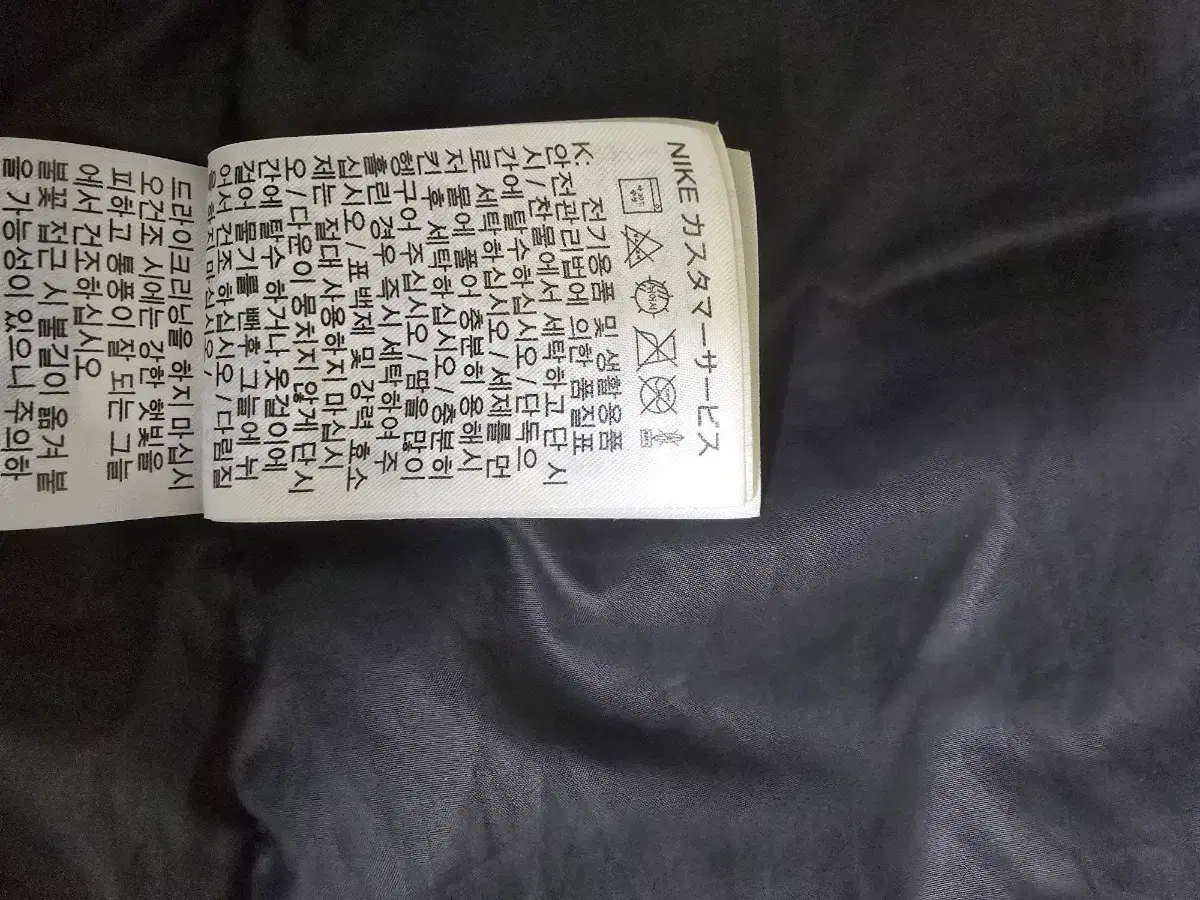 NIKE カスタマーサービス
K: 전기용품 및 생활용품
안전관리법에 의한 품질표
시 / 찬물에서 세탁하고 단 시
간에 탈수하십시오 / 단독으
로 세탁하십시오 / 세제를 먼
저 물에 풀어 충분히 용해시
킨 후 세탁하십시오 / 충분히
헹구어 주십시오 / 땀을 많이
흘린 경우 즉시 세탁하여 주
십시오 / 표백제 및 강력 효소
제는 절대 사용하지 마십시
오 / 다운이 뭉치지 않게 단 시
간에 탈수 하거나, 옷걸이에
걸어 물기를 뺀후 그늘에 뉘
어서 건조 하십시오 / 다림질
을 하지 마십시오 /
드라이크리닝을 하지 마십시
오건조 시에는 강한 햇빛을
피하고 통풍이 잘 되는 그늘
에서 건조하십시오
불꽃 접근 시 불길이 옮겨 붙
을 가능성이 있으니 주의하